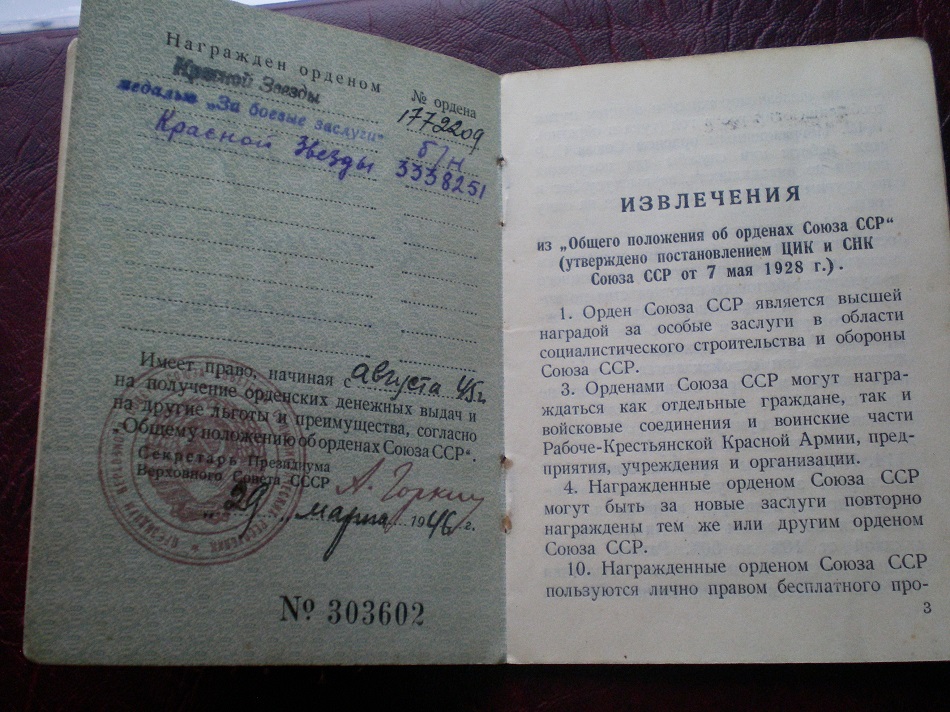 Награжден орденом
№ ордена
Красной Звезды 1772209
медалью „За боевые заслуги" б/н
Красной Звезды 3338251
Имеет право, начиная с августа 45 г.
на получение орденских денежных выдач и
на другие льготы и преимущества, согласно
„Общему положению об орденах Союза ССР".
Секретарь Президиума
Верховного Совета СССР А. Горкин
„29" марта 1946 г.
№ 303602
ИЗВЛЕЧЕНИЯ
из „Общего положения об орденах Союза ССР"
(утверждено постановлением ЦИК и СНК
Союза ССР от 7 мая 1928 г.).
1. Орден Союза ССР является высшей
наградой за особые заслуги в области
социалистического строительства и обороны
Союза ССР.
3. Орденами Союза ССР могут награ-
ждаться как отдельные граждане, так и
войсковые соединения и воинские части
Рабоче-Крестьянской Красной Армии, пред-
приятия, учреждения и организации.
4. Награжденные орденом Союза ССР
могут быть за новые заслуги повторно
награждены тем же или другим орденом
Союза ССР.
10. Награжденные орденом Союза ССР
пользуются лично правом бесплатного про-
3